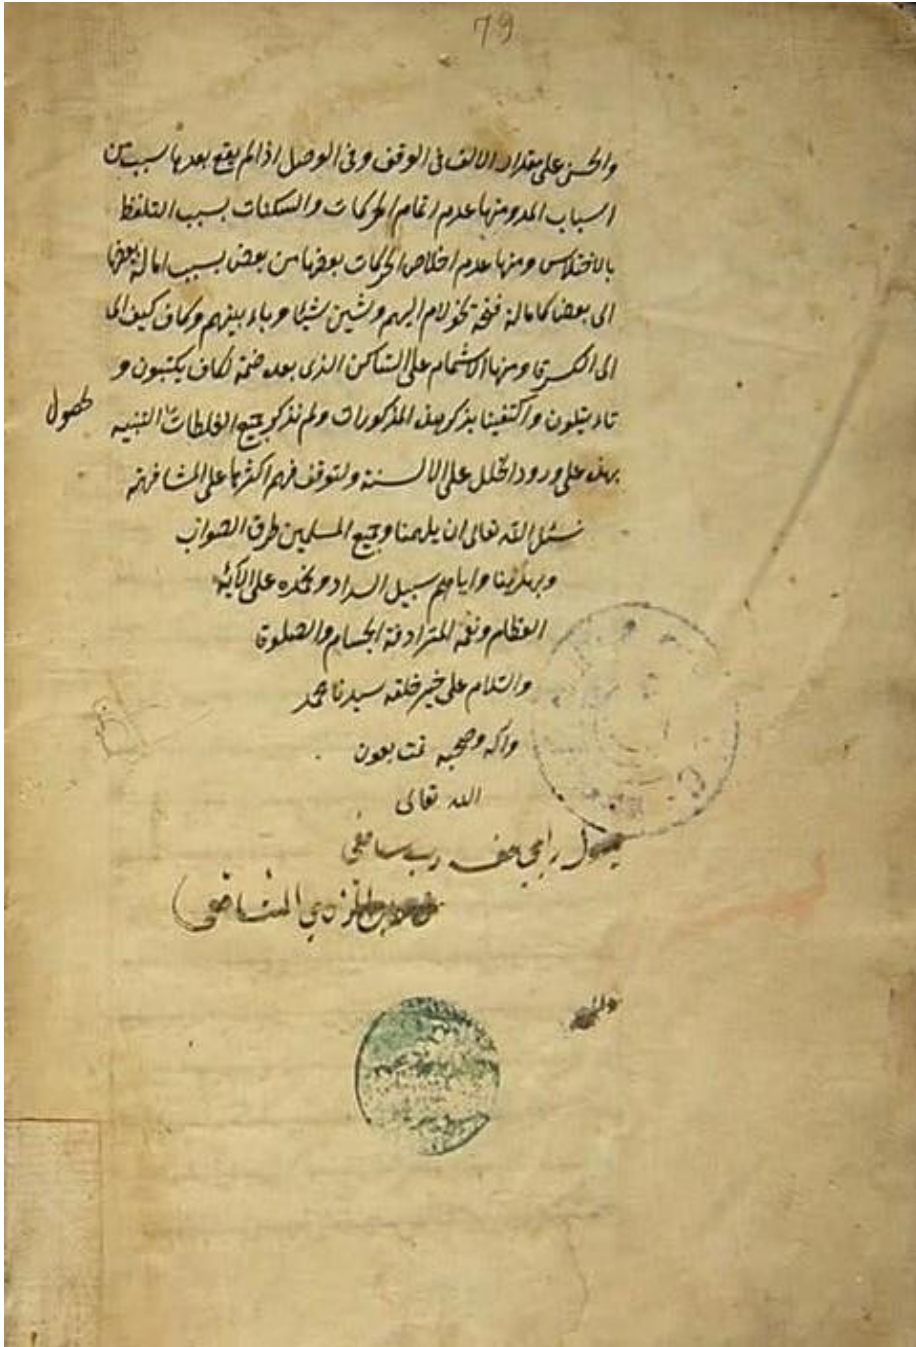 79
والحسن على مقدار الالف فى الوقف وفى الوصل اذا لم يقع بعدها سبب من
اسباب المد ومنها عدم اتمام الحركات والسكنات بسبب التلفظ
بالاختلاس ومنها عدم اخلاص الحركات بعضها من بعض بسبب امالة بعضها
الى بعض كامالة فتحة نحو لام اليهم وشين شيئا وباء بينهم وكاف كيف الى
الى الكسرة ومنها الاشمام على الساكن الذى بعده ضمة لكاف يكتبون و
تاء يتلون واكتفينا بذكر هذه المذكورات ولم نذكر جميع الغلطات التنبيه
لحصول
بهذه على ورود الخلل على الالسنة ولتوقف فهم اكثرها على المشافهة
نسئل الله تعالى ان يلهمنا وجميع المسلمين طرق الصواب
ويهدينا واياهم سبيل السداد ونحمده على آلائه
العظام ونعمه المترادفة الجسام والصلوة
والسلام على خير خلقه سيدنا محمد
وآله وصحبه تمت بعون
الله تعالى
راجى عفو رب